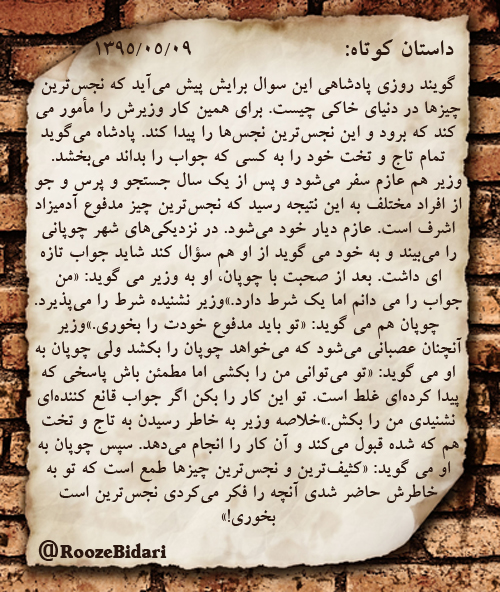 داستان کوتاه: ۱۳۹۵/۰۵/۰۹
گویند روزی پادشاهی این سوال برایش پیش می‌آید که نجس‌ترین
چیزها در دنیای خاکی چیست. برای همین کار وزیرش را مأمور می
کند که برود و این نجس‌ترین نجس‌ها را پیدا کند. پادشاه می‌گوید
تمام تاج و تخت خود را به کسی که جواب را بداند می‌بخشد.
وزیر هم عازم سفر می‌شود و پس از یک سال جستجو و پرس و جو
از افراد مختلف به این نتیجه رسید که نجس‌ترین چیز مدفوع آدمیزاد
اشرف است. عازم دیار خود می‌شود. در نزدیکی‌های شهر چوپانی
را می‌بیند و به خود می گوید از او هم سؤال کند شاید جواب تازه
ای داشت. بعد از صحبت با چوپان، او به وزیر می گوید: «من
جواب را می دانم اما یک شرط دارد.»وزیر نشنیده شرط را می‌پذیرد.
چوپان هم می گوید: «تو باید مدفوع خودت را بخوری.»وزیر
آنچنان عصبانی می‌شود که می‌خواهد چوپان را بکشد ولی چوپان به
او می گوید: «تو می‌توانی من را بکشی اما مطمئن باش پاسخی که
پیدا کرده‌ای غلط است. تو این کار را بکن اگر جواب قانع کننده‌ای
نشنیدی من را بکش.»خلاصه وزیر به خاطر رسیدن به تاج و تخت
هم که شده قبول می‌کند و آن کار را انجام می‌دهد. سپس چوپان به
او می گوید: «کثیف‌ترین و نجس‌ترین چیزها طمع است که تو به
خاطرش حاضر شدی آنچه را فکر می‌کردی نجس‌ترین است
بخوری!»
@RoozeBidari